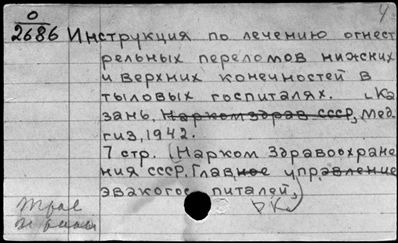 О
2686 Инструкция по лечению огнест
рельных переломов нижних
и верхних конечностей в
тыловых госпиталях. Ка
зань, Наркомздрав СССР, Мед
гиз, 1942.
7 стр. (Нарком Здравоохране
ния СССР. Главное управление
эвакогоспиталей)